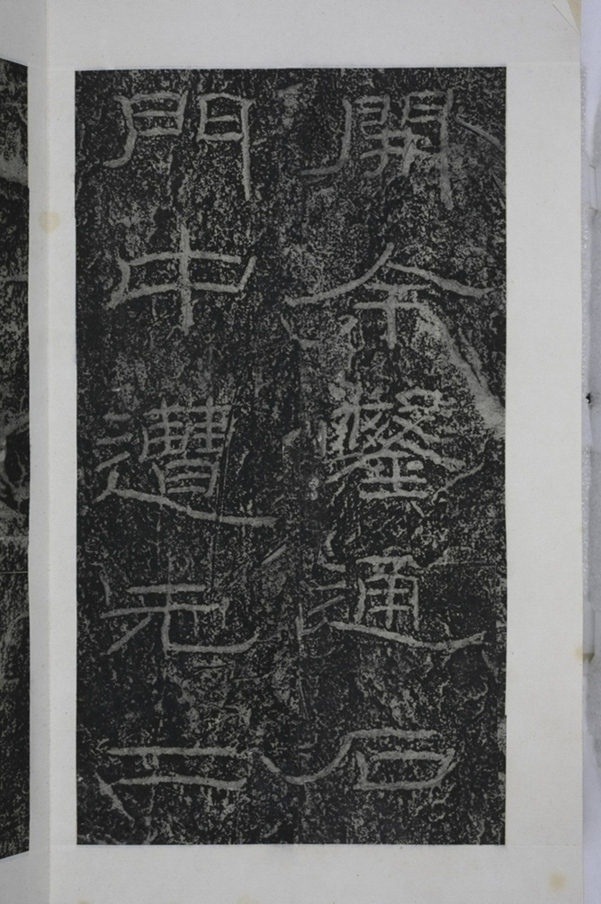 開余鑿通石
門中遭元二